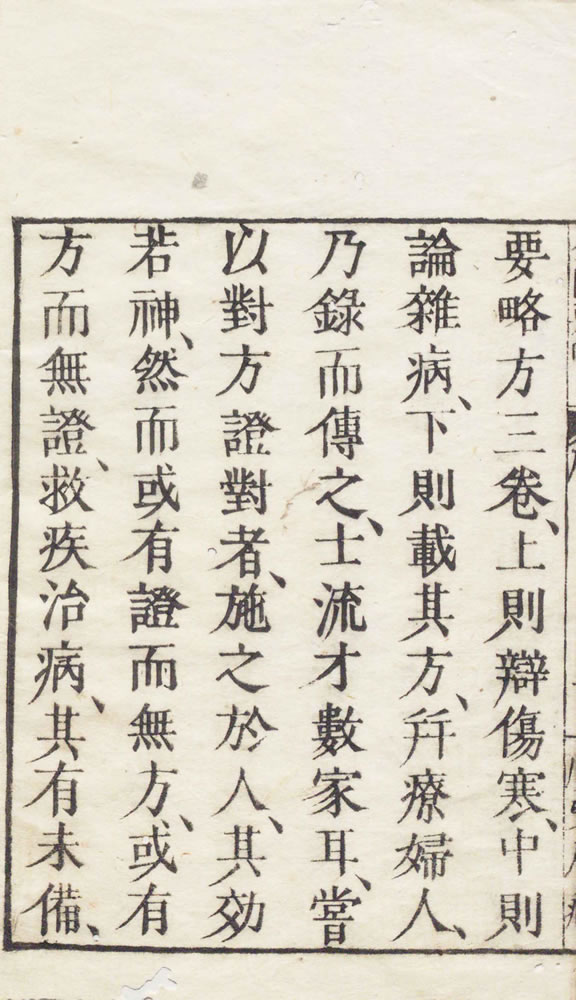 要略方三卷、上則辯傷寒、中則
論雜病、下則載其方、幷療婦人、
乃錄而傳之、士流才數家耳、嘗
以對方證對者、施之於人、其効
若神、然而或有證而無方、或有
方而無證、救疾治病、其有未備、